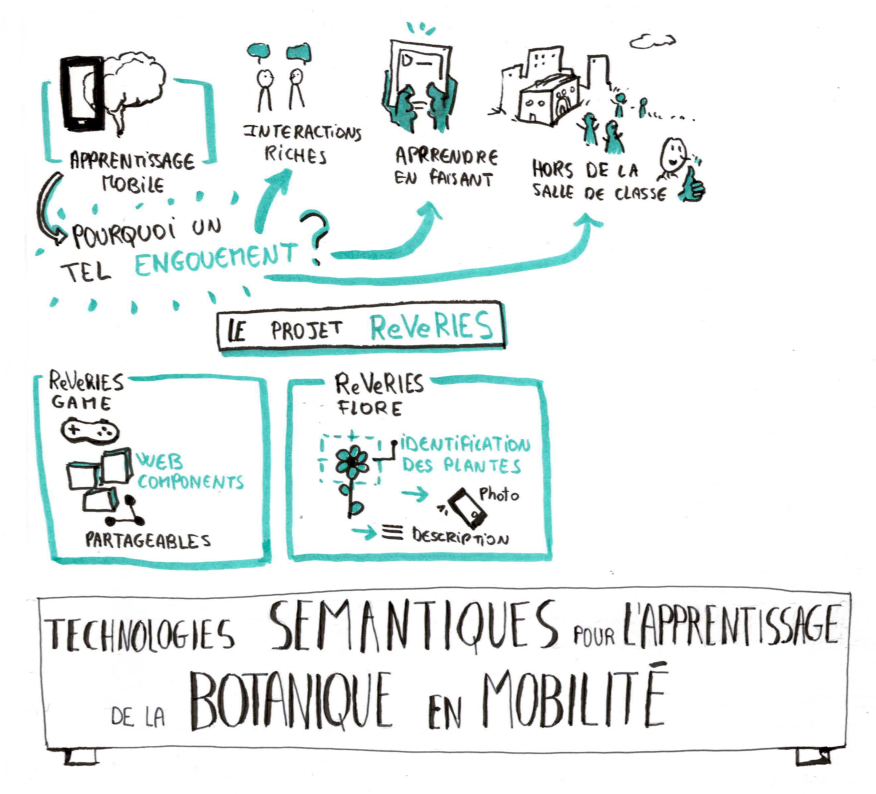 APPRENTISSAGE
MOBILE
INTERACTIONS
RICHES
APPRENDRE
EN FAISANT
HORS DE LA
SALLE DE CLASSE
POURQUOI UN
TEL ENGOUEMENT ?
LE PROJET ReVeRIES
ReVeRIES
GAME
WEB
COMPONENTS
PARTAGEABLES
ReVeRIES
FLORE
IDENTIFICATION
DES PLANTES
Photo
DESCRIPTION
TECHNOLOGIES SEMANTIQUES POUR L'APPRENTISSAGE
DE LA BOTANIQUE EN MOBILITÉ